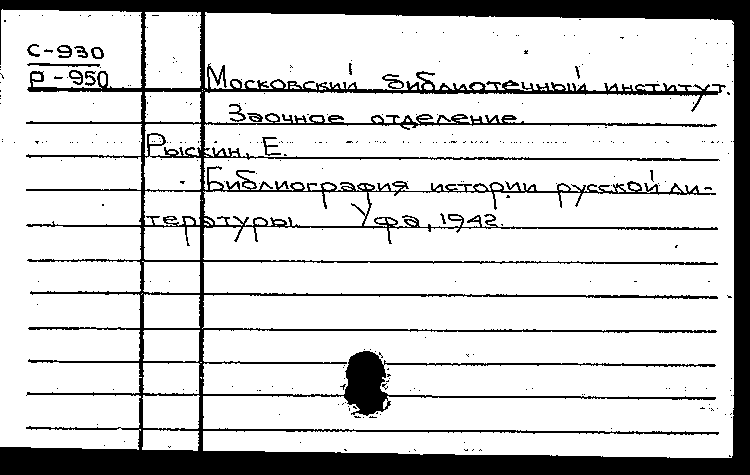 С-930
Р-950
Московский библиотечный институт.
Заочное отделение.
Рыскин, Е.
Библиография истории русской ли-
тературы. Уфа, 1942.